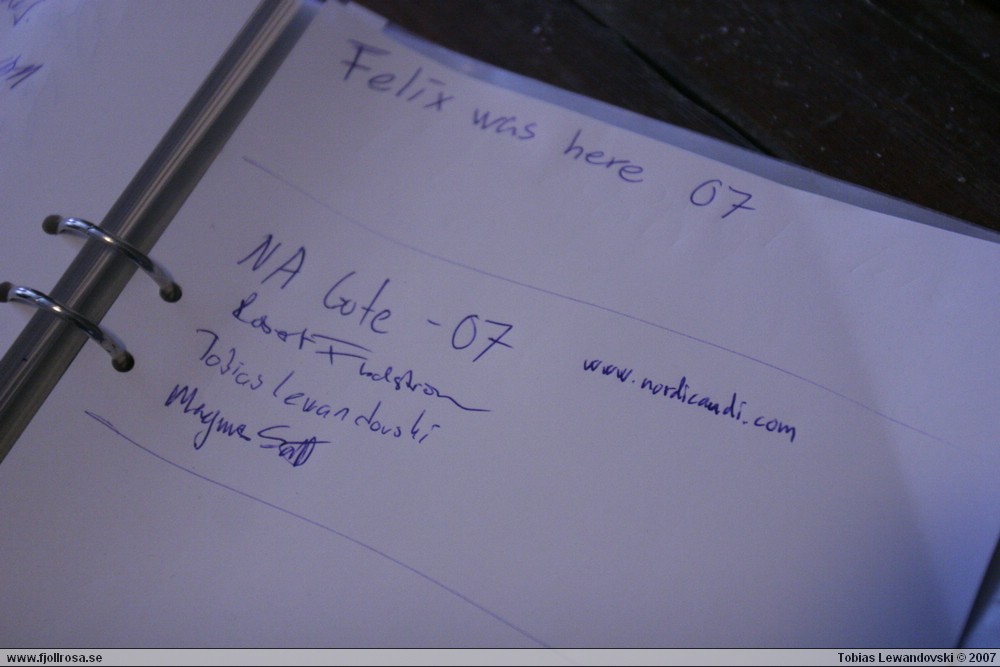 Felix was here 07
NA Gote -07
www.nordicaudi.com
Robert
Tobias Levandovski
Magnus
www.fjollrosa.se
Tobias Lewandovski © 2007